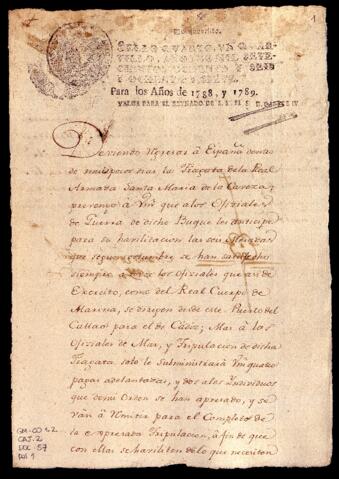 1
SELLO QUARTO, VN QVAR-
TILLO, AÑOS DE MIL SETE-
CIENTOS OCHENTA Y SEIS
Y OCHENTA Y SIETE.
Para los Años de 1788, y 1789.
VALGA PARA EL REYNADO DE S. M. EL S. D. CARLOS IV
Deviendo regresar à España dentro
de muy pocos dias la Fragata de la Real
Armada Santa Maria de la Caveza;
prevengo à Vms que alos Oficiales
de Guerra de dicho Buque les anticipe
para su havilitacion las seis
que segun costumbre se han satisfecho
siempre à los Oficiales que así de
Exercito, como del Real Cuerpo de
Marina, se dirijen desde este Puerto del
Callao para el de Cadiz; Mas à los
Oficiales de Mar, y Tripulacion de dicha
Fragata solo le Subministrará Vm quatro
pagas adelantadas, y dos alos Individuos
que de mi Orden se han apresado, y se
ván à Remitir para el Completo de
la expresada Tripulacion, à fin de que
con ellas se haviliten de lo que necesiten
GM-CO 22
CAJ. 2
DOC. 57
fol 1